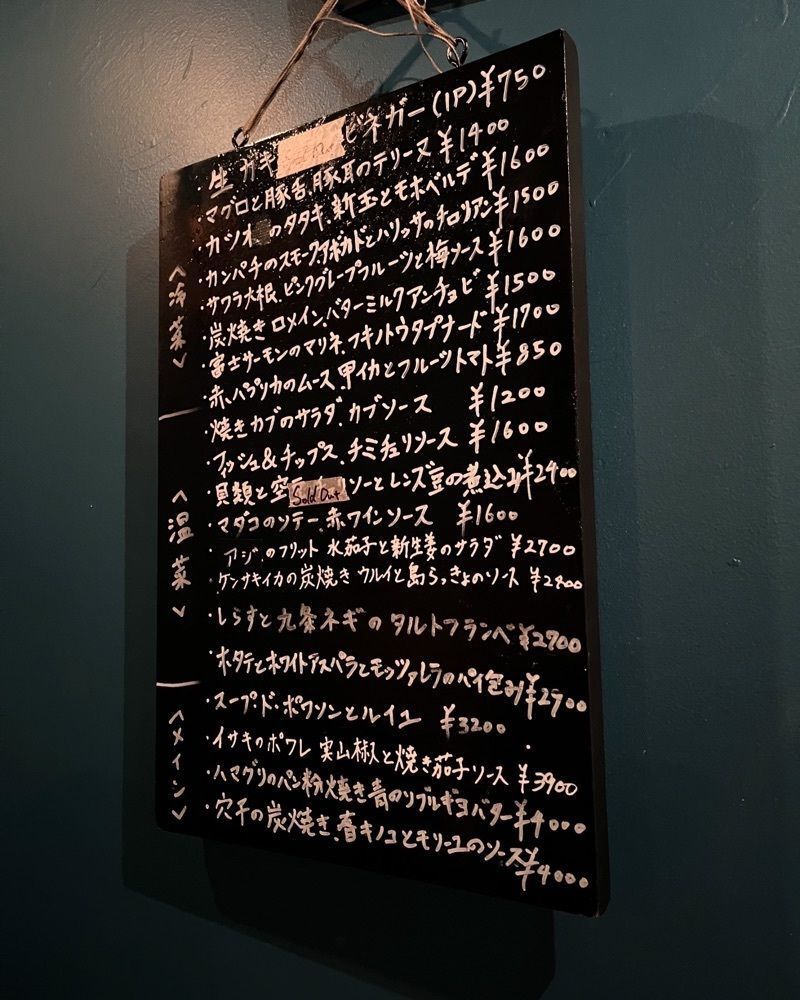 ・生ガキ ビネガー(1P)¥750
・マグロと豚舌、豚耳のテリーヌ ¥1400
・カツオのタタキ、新玉とモホベルデ ¥1600
・カンパチのスモーク アボカドとハリッサのチロリアン ¥1500
・サワラ大根、ピンクグレープフルーツと梅ソース ¥1600
・炭焼きロメイン、バターミルクアンチョビ ¥1500
・富士サーモンのマリネ、フキノトウタプナード ¥1700
・赤パプリカのムース、甲イカとフルーツトマト ¥850
・焼きカブのサラダ、カブソース ¥1200
〈冷菜〉
・フィッシュ&チップス、チミチュリソース ¥1600
・貝類と空豆 ソーとレンズ豆の煮込み ¥2400
Sold Out
・マダコのソテー、赤ワインソース ¥1600
・アジのフリット 水茄子と新生姜のサラダ ¥2700
・ケンサキイカの炭焼き ウルイと島らっきょのソース
・しらすと九条ネギのタルトフランベ ¥2700
・ホタテとホワイトアスパラとモッツァレラのパイ包み ¥2900
〈温菜〉
・スープ・ド・ポワソンとルイユ ¥3200
・イサキのポワレ 実山椒と焼き茄子ソース ¥3900
・ハマグリのパン粉焼き青のりブルギョバター ¥4000
・穴子の炭焼き、春キノコとモリーユのソース ¥4000
〈メイン〉